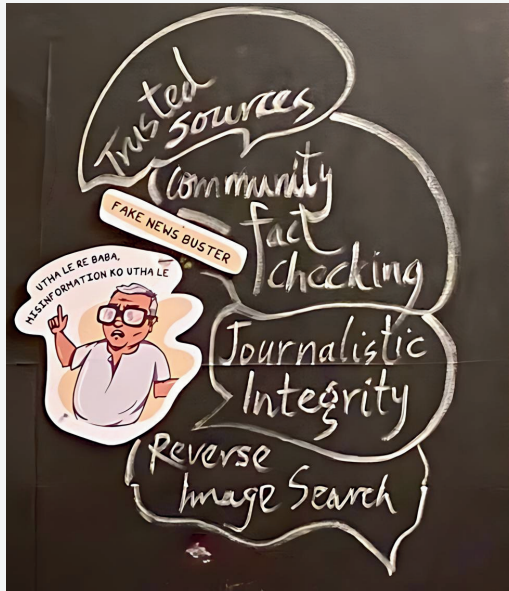 Trusted
Sources
Community
FAKE NEWS BUSTER
fact
checking
UTHA LE RE BABA,
MISINFORMATION KO UTHA LE
Journalistic
Integrity
Reverse
Image Search